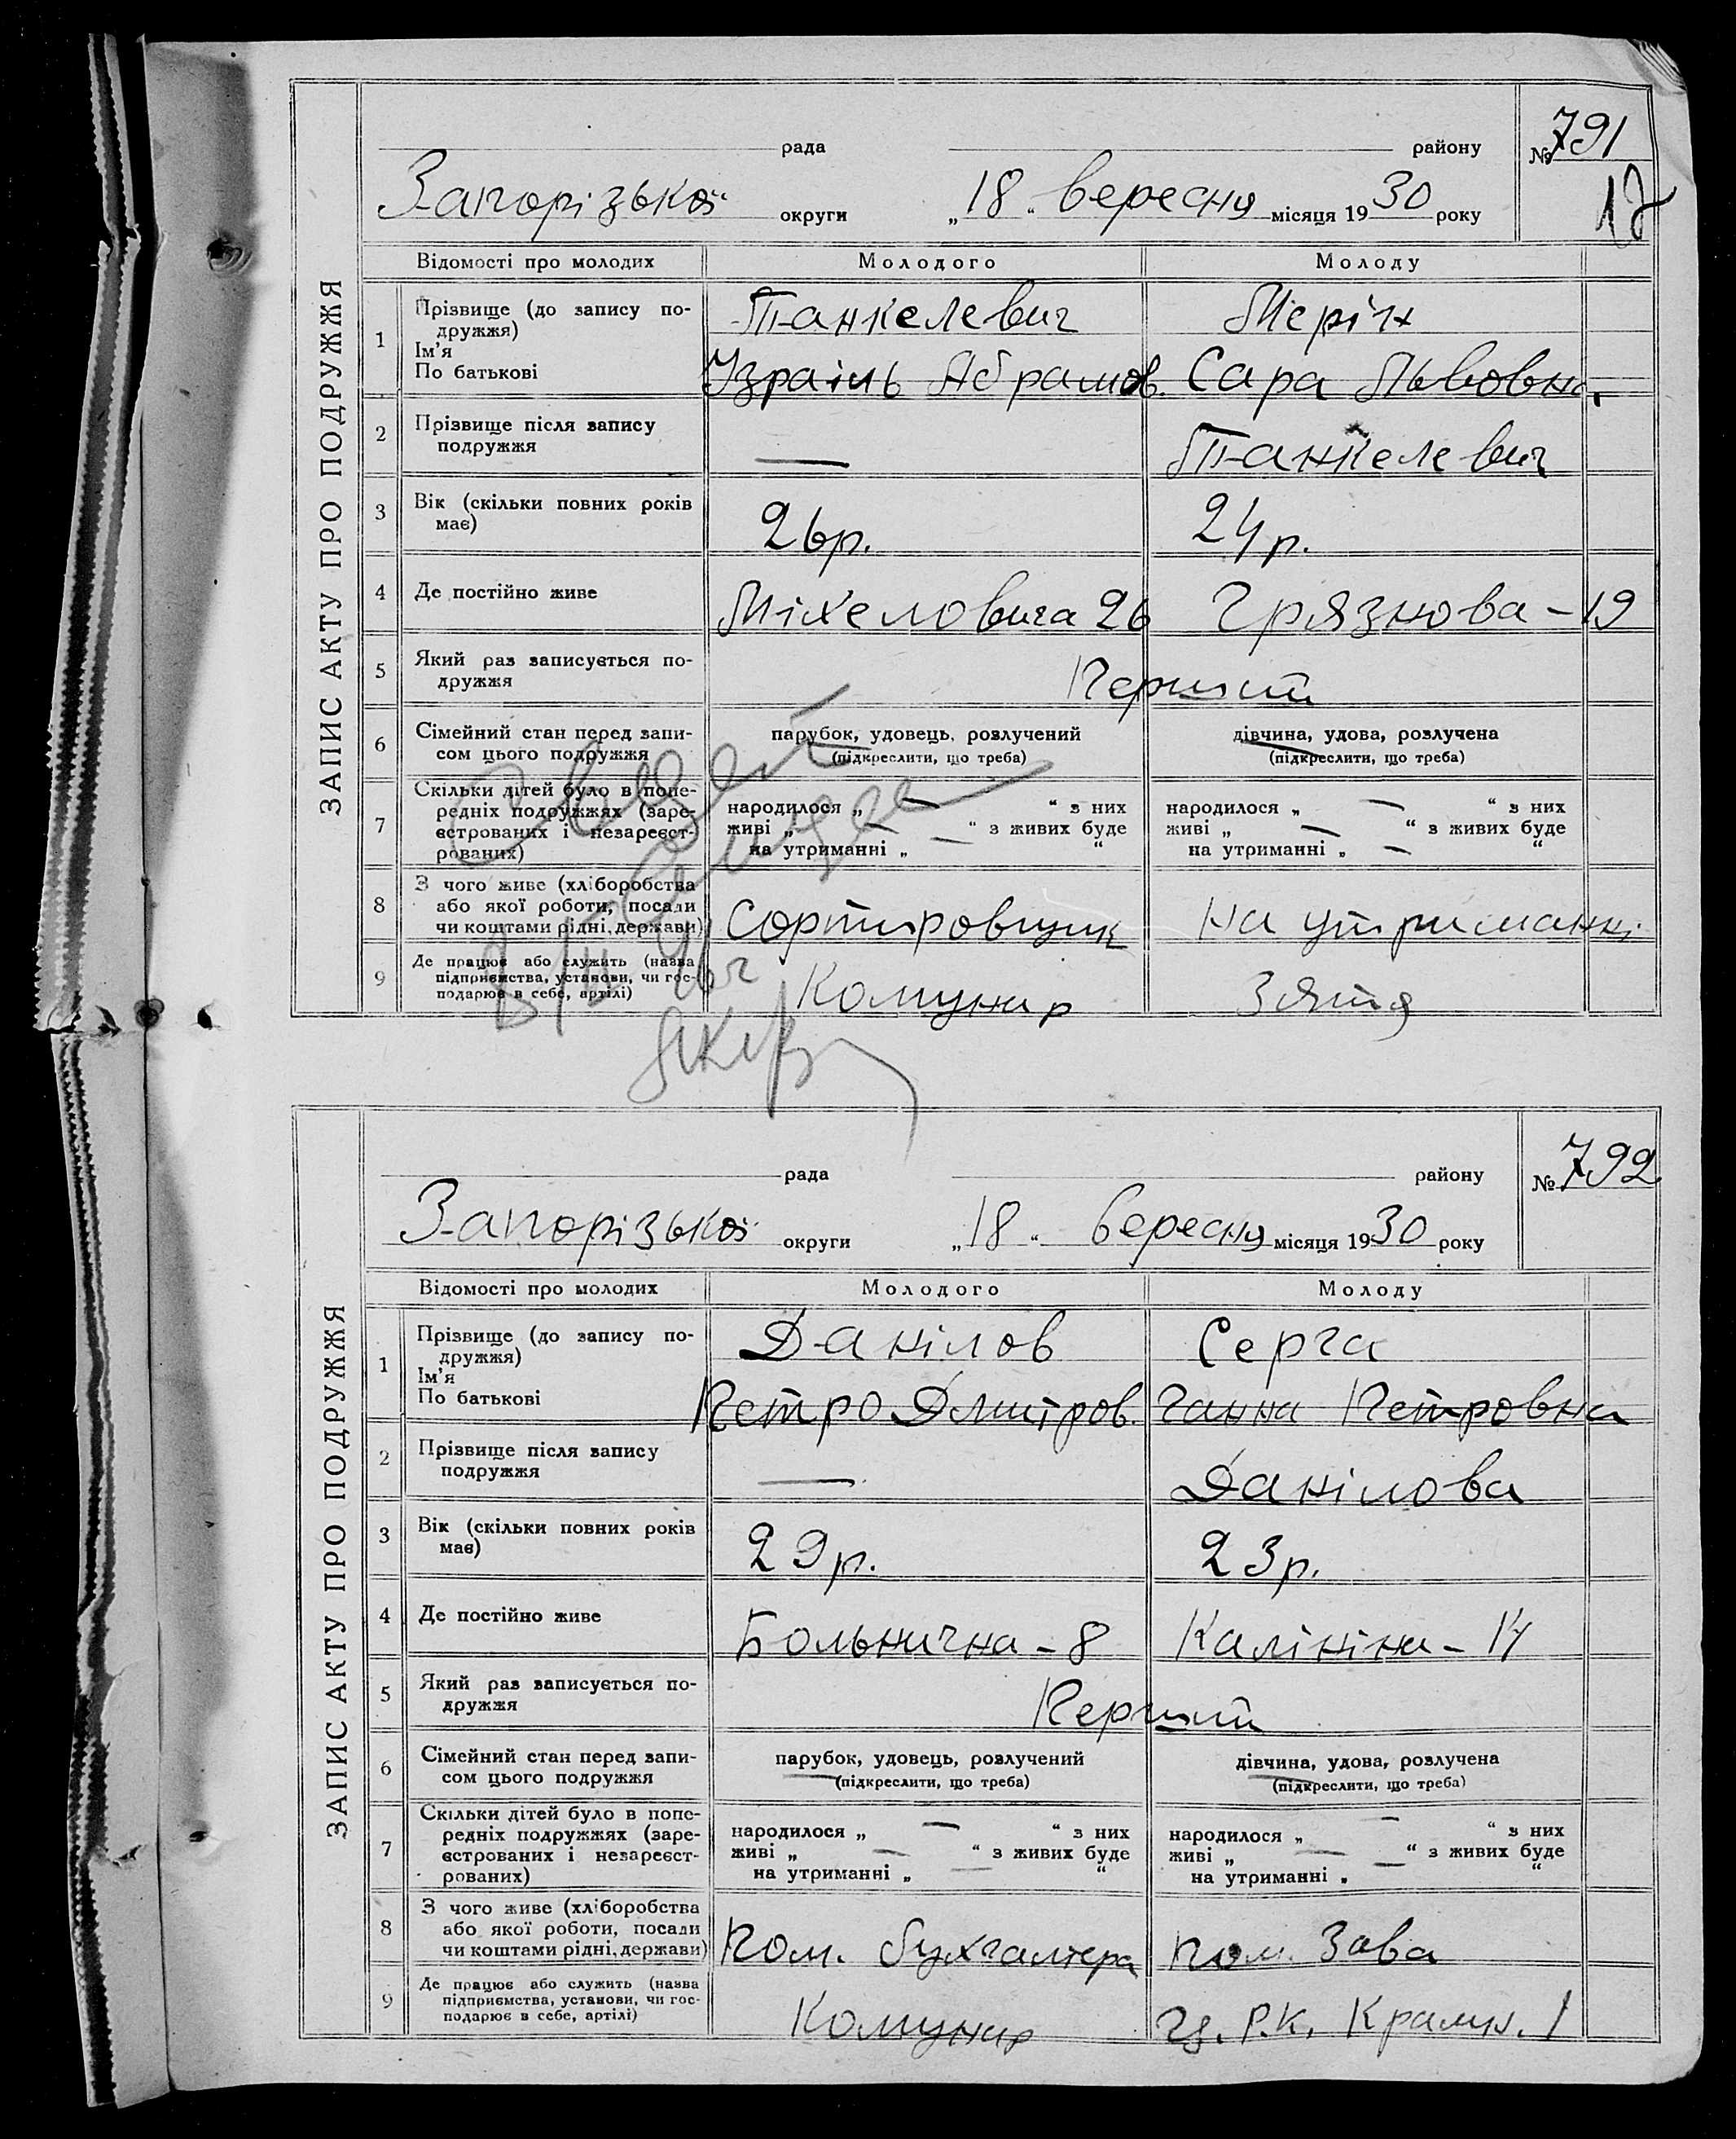 ЗАПИС АКТУ ПРО ПОДРУЖЖЯ
рада району № 791
Запорізької округи „18“ вересня місяця 1930 року
Відомості про молодих Молодого Молоду
1 Прізвище (до запису подружжя) Танкелевич Мерін
Ім’я
По батькові Ізраіль Абрамов. Сара Львовна
2 Прізвище після запису подружжя — Танкелевич
3 Вік (скільки повних років має) 26р. 24р.
4 Де постійно живе Міхеловича 26 Грязнова – 19
5 Який раз записується подружжя Перший
6 Сімейний стан перед записом цього подружжя парубок, удовець, розлучений дівчина, удова, розлучена
(підкреслити, що треба) (підкреслити, що треба)
7 Скільки дітей було в попередніх подружжях (зареєстрованих і незареєстрованих) народилося „ — “ з них народилося „ — “ з них
живі „ — “ з живих буде живі „ — “ з живих буде
на утриманні „ — “ на утриманні „ — “
8 З чого живе (хліборобства або якої роботи, посади чи коштами рідні, держави) Сортировщик на утриманні
9 Де працює або служить (назва підприємства, установи, чи господарює в себе, артілі) Комунар Зятя
ЗАПИС АКТУ ПРО ПОДРУЖЖЯ
рада району № 792
Запорізької округи „18“ вересня місяця 1930 року
Відомості про молодих Молодого Молоду
1 Прізвище (до запису подружжя) Данілов Серга
Ім’я
По батькові Петро Дмитров. Ганна Петровна
2 Прізвище після запису подружжя — Данілова
3 Вік (скільки повних років має) 29р. 23р.
4 Де постійно живе Больнична – 8 Калініна – 14
5 Який раз записується подружжя Перший
6 Сімейний стан перед записом цього подружжя парубок, удовець, розлучений дівчина, удова, розлучена
(підкреслити, що треба) (підкреслити, що треба)
7 Скільки дітей було в попередніх подружжях (зареєстрованих і незареєстрованих) народилося „ — “ з них народилося „ — “ з них
живі „ — “ з живих буде живі „ — “ з живих буде
на утриманні „ — “ на утриманні „ — “
8 З чого живе (хліборобства або якої роботи, посади чи коштами рідні, держави) Пом. бухгалтера пом. Зава
9 Де працює або служить (назва підприємства, установи, чи господарює в себе, артілі) Комунар Ц.Р.К. Крамн. 1